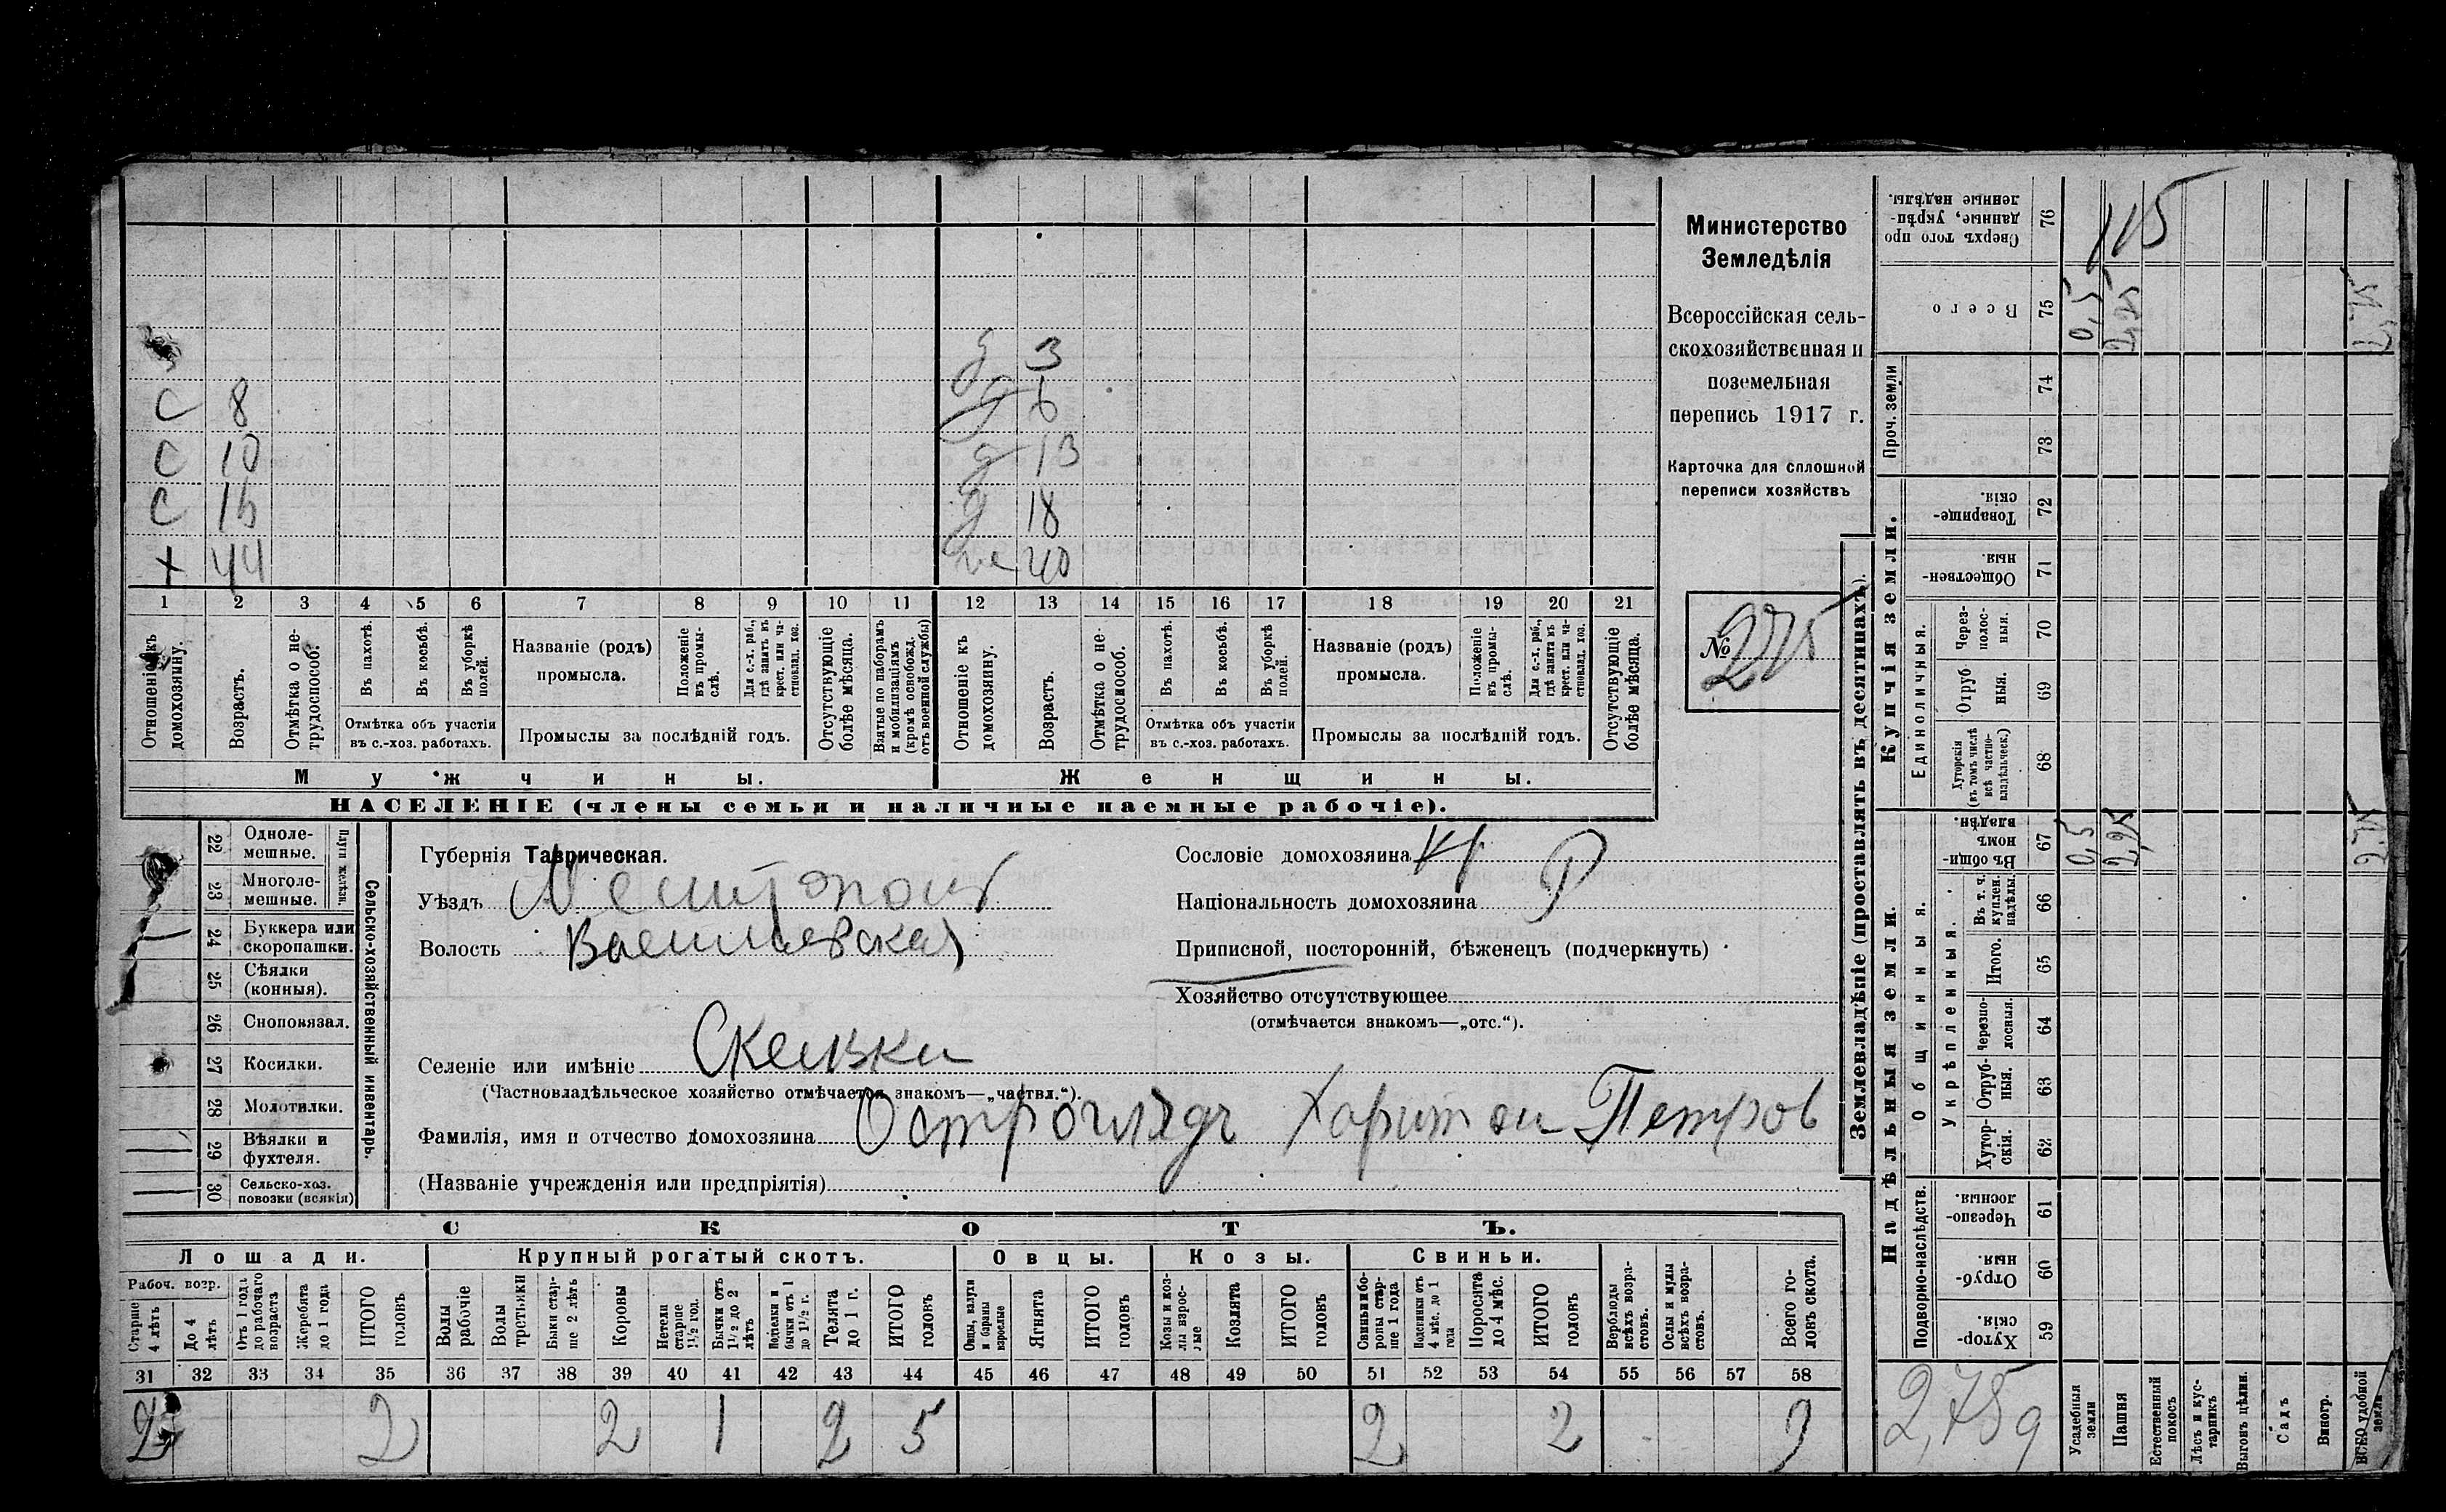 Министерство
Земледѣлія
Всероссійская сель-
скохозяйственная и
поземельная
перепись 1917 г.
Карточка для сплошной
переписи хозяйствъ
№ 275
3
С 8 6
С 10 13
С 16 18
+ 44 же 40
1 2 3 4 5 6 7 8 9 10 11 12 13 14 15 16 17 18 19 20 21
Отношеніе къ домохозяину.
Возрастъ.
Отмѣтка о не-трудоспособ.
Въ пахотѣ.
Въ косьбѣ.
Въ уборкѣ полей.
Отмѣтка объ участіи
въ с.-хоз. работахъ.
Названіе (родъ)
промысла.
Положеніе въ промы-слѣ.
Для с.-х. раб., гдѣ занятъ въ крест. или ча-стновлад. хоз.
Промыслы за послѣдній годъ.
Отсутствующіе болѣе мѣсяца.
Взятые по наборамъ и мобилизаціямъ (кромѣ освобожд. отъ военной службы)
Отношеніе къ домохозяину.
Возрастъ.
Отмѣтка о не-трудоспособ.
Въ пахотѣ.
Въ косьбѣ.
Въ уборкѣ полей.
Отмѣтка объ участіи
въ с.-хоз. работахъ.
Названіе (родъ)
промысла.
Положеніе въ промы-слѣ.
Для с.-х. раб., гдѣ занятъ въ крест. или ча-стновлад. хоз.
Промыслы за послѣдній годъ.
Отсутствующіе болѣе мѣсяца.
Мужчины. Женщины.
НАСЕЛЕНІЕ (члены семьи и наличные наемные рабочіе).
Сельско-хозяйственный инвентарь.
Плуги желѣзн.
22 Одноле-мешные.
23 Многоле-мешные.
24 Буккера или скоропашки.
25 Сѣялки (конныя).
26 Сноповязал.
27 Косилки.
28 Молотилки.
29 Вѣялки и фухтеля.
30 Сельско-хоз. повозки (всякія)
Губернія Таврическая.
Уѣздъ Мелитополь
Волость Васильевская
Сословіе домохозяина
Національность домохозяина Р
Приписной, посторонній, бѣженецъ (подчеркнуть)
Хозяйство отсутствующее
(отмѣчается знакомъ—„отс.“).
Селеніе или имѣніе Скельки
(Частновладѣльческое хозяйство отмѣчается знакомъ—„частвл.“).
Фамилія, имя и отчество домохозяина Остроглядъ Харитон Петров
(Названіе учрежденія или предпріятія)
СКОТЪ.
Лошади. Крупный рогатый скотъ. Овцы. Козы. Свиньи.
Рабоч. возр.
Старше 4 лѣтъ
До 4 лѣтъ
Отъ 1 года до рабочаго возраста
Жеребята до 1 года
ИТОГО головъ
Волы рабочіе
Волы третьяки
Быки стар-ше 2 лѣтъ
Коровы
Нетели старше 1½ год.
Бычки отъ 1½ до 2 лѣтъ
Подтелки и бычки отъ 1 до 1½ г.
Телята до 1 г.
ИТОГО головъ
Овцы, валухи и бараны взрослые
Ягнята
ИТОГО головъ
Козы и коз-лы взрос-лые
Козлята
ИТОГО головъ
Свиньи и бо-ровы стар-ше 1 года
Подсвинки отъ 4 мѣс. до 1 года
Поросята до 4 мѣс.
ИТОГО головъ
Верблюды всѣхъ возра-стовъ.
Ослы и мулы всѣхъ возра-стовъ.
Всего го-ловъ скота.
31 32 33 34 35 36 37 38 39 40 41 42 43 44 45 46 47 48 49 50 51 52 53 54 55 56 57 58
2 2 2 1 2 5 2 2 9
Землевладѣніе (проставлять въ десятинахъ).
Купчія земли.
Надѣльныя земли.
Сверхъ того про-данные, укрѣп-ленные надѣлы. 76 115
Всего 75 0,5 2,25 2,75
Проч. земли 74
73
Товарище-скія. 72
Обществен-ныя 71
Единоличныя.
Через-полос-ныя. 70
Отруб-ныя. 69
Хуторскія (въ томъ числѣ всѣ частно-владѣльческ.) 68
Общинныя.
Въ общи-номъ владѣн. 67 0,5 2,25 2,75
Укрѣпленныя.
Въ т. ч. куплен. надѣлы. 66
Итого. 65
Черезпо-лосныя. 64
Отруб-ныя. 63
Хутор-скія. 62
Подворно-наслѣдств.
Черезпо-лосныя. 61
Отруб-ныя. 60
Хутор-скія. 59
2,75 д
Усадебныя земли
Пашня
Естественный покосъ
Лѣсъ и кус-тарникъ
Выгонъ цѣлин.
Садъ
Виногр.
ВСЕГО удобной земли